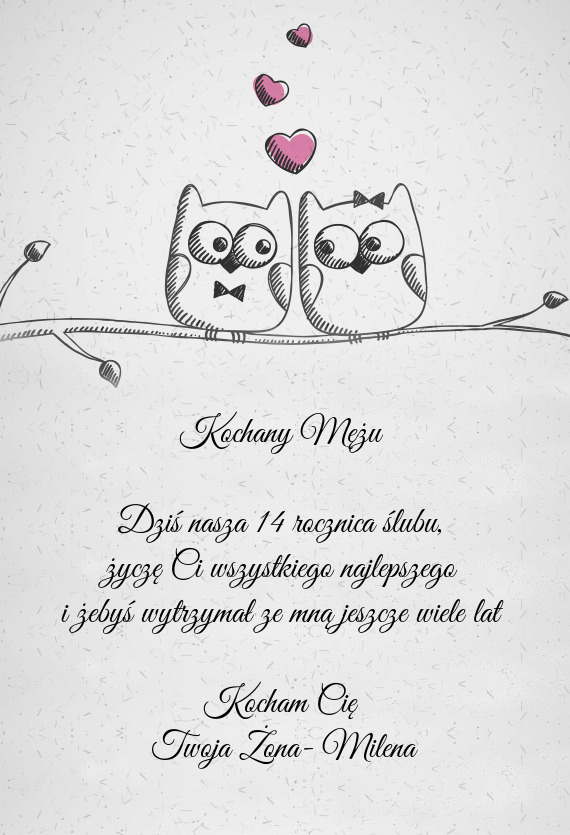 Kochany Mężu
Dziś nasza 14 rocznica ślubu,
życzę Ci wszystkiego najlepszego
i żebyś wytrzymał ze mną jeszcze wiele lat
Kocham Cię
Twoja Żona- Milena